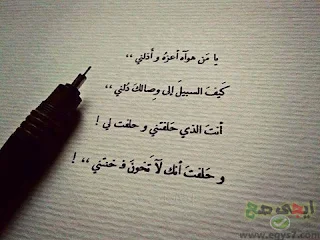 يا مَن هوآه أعزهُ و أذلني ،،
كَيفَ السبيلَ إلى وِصالكَ دُلني ،،
أنتَ الذي حَلفتني و حلفت لي !
و حَلفتَ أنكَ لآ تَخونَ فـ خنتني ،، !
إيجى صح
www.egys7.com